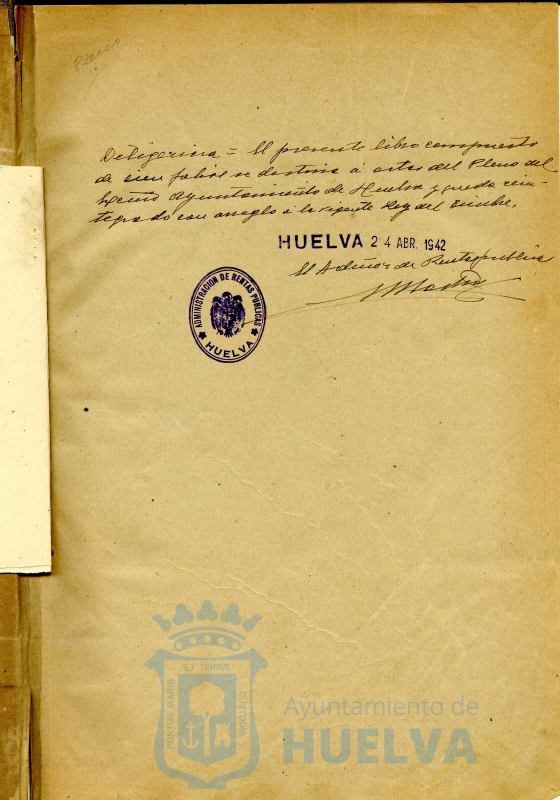 Pleno
Diligencia = El presente libro compuesto
de cien folios se destina á actas del Pleno del
Excmo Ayuntamiento de Huelva y queda rein-
tegrado con arreglo á la vigente Ley del Timbre.
HUELVA 24 ABR. 1942
El Admor de Rentas publicas
ADMINISTRACION DE RENTAS PUBLICAS
HUELVA
PORTUS MARIS ET TERRÆ CUSTODIA
Ayuntamiento de
HUELVA